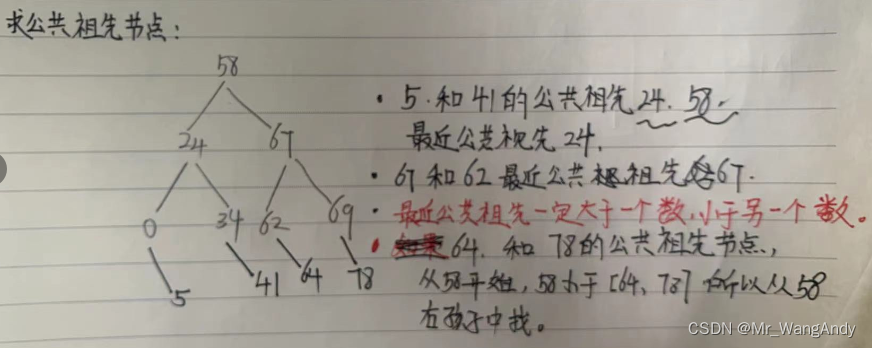 求公共祖先节点：
58
24 67
0 34 62 69
5 41 64 78
· 5.和41的公共祖先24.58.
最近公共祖先24.
· 67和62最近公共祖先67.
· 最近公共祖先一定大于一个数,小于另一个数。
· 64.和78的公共祖先节点,
从58开始,58小于[64、78]所以从58
右孩子中找。
CSDN @Mr_WangAndy